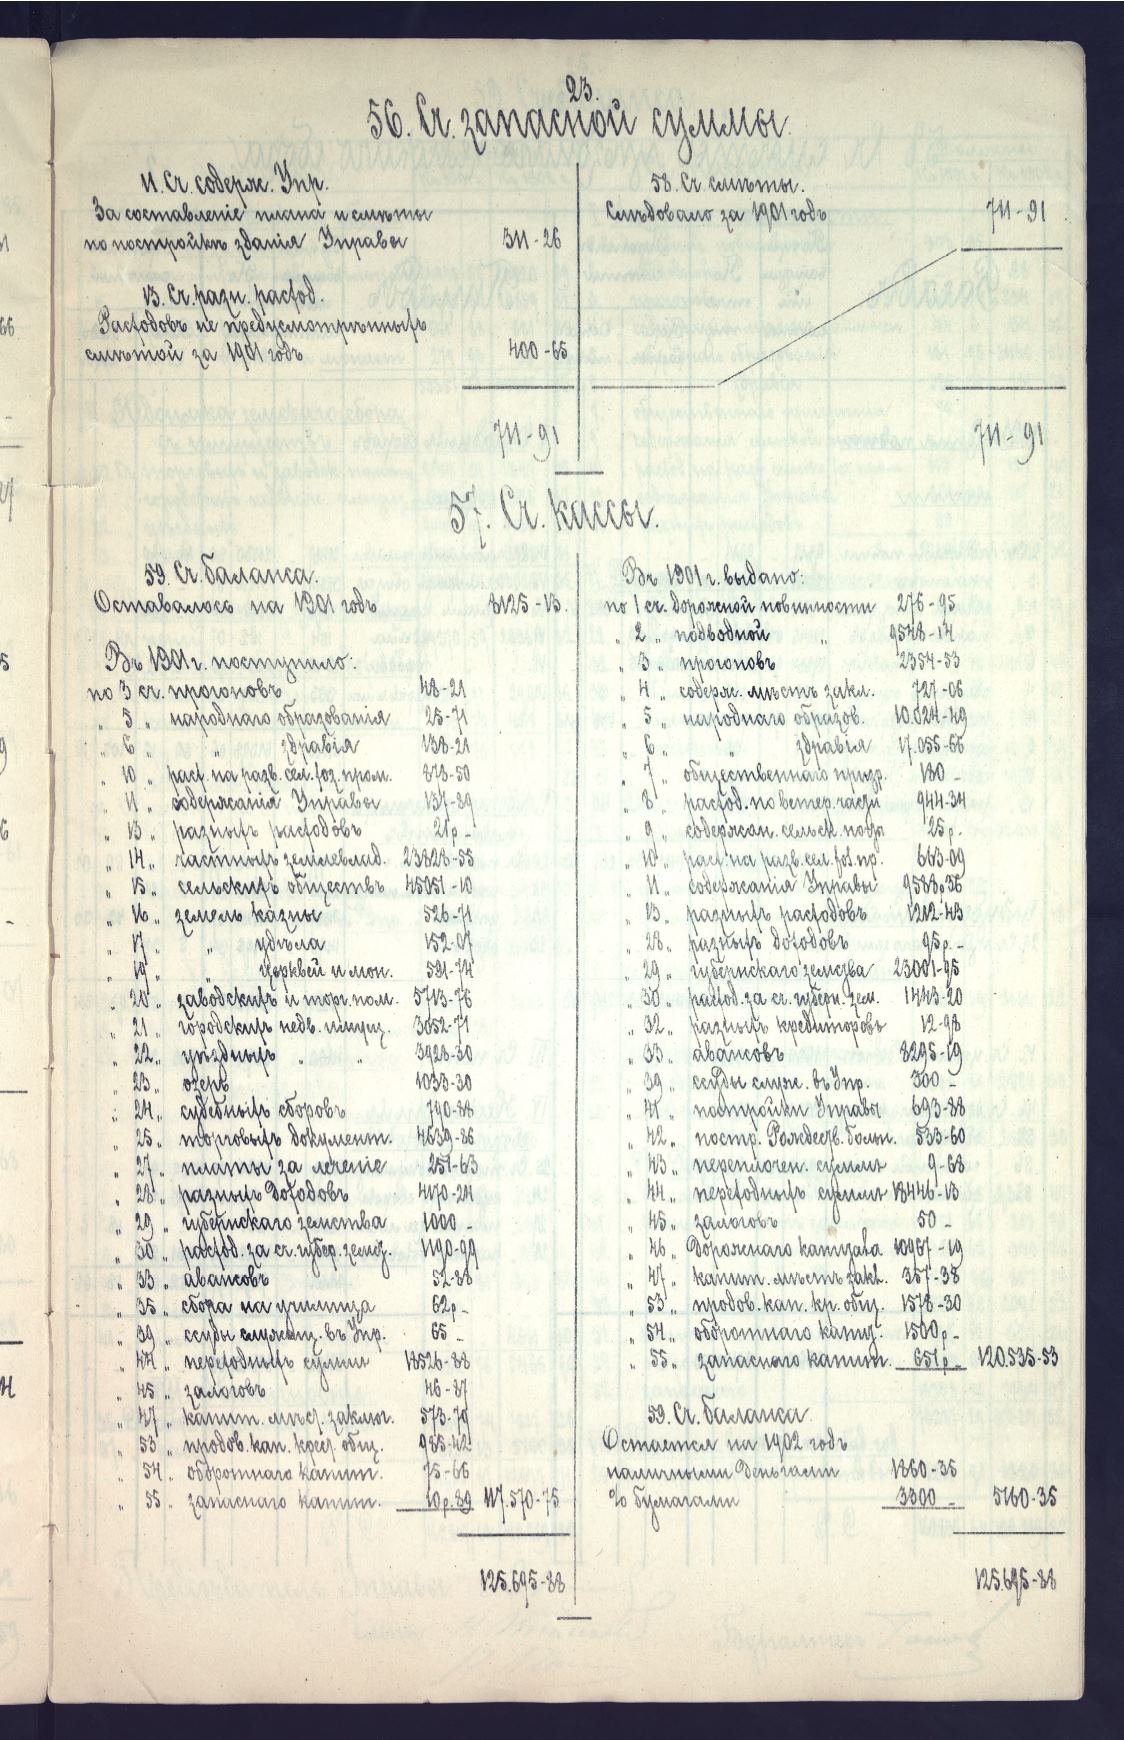 23.
56. Сч. запасной суммы.
11. Сч. содерж. Упр.
За составленіе плана и смѣты
по постройкѣ зданія Управы 311-26
13. Сч. разн. расход.
Расходовъ не предусмотрѣнныхъ
смѣтой за 1901 годъ 400-65
711-91
58. Сч. смѣты.
Слѣдовало за 1901 годъ 711-91
711-91
57. Сч. кассы.
59. Сч. баланса.
Оставалось на 1901 годъ 8125-13.
Въ 1901 г. поступило:
по 3 сч. прогоновъ 48-21
„ 5 „ народнаго образованія 25-71
„ 6 „ „ здравія 138-21
„ 10 „ расх. на разв. сел. хоз. пром. 878-50
„ 11 „ содержанія Управы 137-89
„ 13 „ разныхъ расходовъ 21р -
„ 14 „ частныхъ землевлад. 23828-55
„ 15 „ сельскихъ обществъ 45051-10
„ 16 „ земель казны 526-71
„ 17 „ „ удѣла 152-07
„ 19 „ „ церквей и мон. 591-74
„ 20 „ заводскихъ и торг. пом. 5713-76
„ 21 „ городскихъ недв. имущ. 3052-71
„ 22 „ уѣздныхъ „ „ 3928-30
„ 23 „ озеръ 1033-30
„ 24 „ судебныхъ сборовъ 790-88
„ 25 „ торговыхъ документ. 4639-86
„ 27 „ платы за леченіе 251-63
„ 28 „ разныхъ доходовъ 4170-24
„ 29 „ губернскаго земства 1000 -
„ 30 „ расход. за сч. губер. земс. 1190-99
„ 33 „ авансовъ 52-88
„ 35 „ сбора на училища 62р -
„ 39 „ ссуды служащ. въ Упр. 65 -
„ 44 „ переходныхъ суммъ 18526-88
„ 45 „ залоговъ 46-87
„ 47 „ капит. мѣст. заключ. 573-79
„ 53 „ продов. кап. крест. общ. 985-42
„ 54 „ оборотнаго капит. 75-66
„ 55 „ запаснаго капит. 10р.89 117.570-75
125.695-88
Въ 1901 г. выдано:
по 1 сч. дорожной повинности 276-95
„ 2 „ подводной „ 9548-14
„ 3 „ прогоновъ 2354-53
„ 4 „ содерж. мѣстъ закл. 727-06
„ 5 „ народнаго образов. 10.024-49
„ 6 „ „ здравія 17.055-66
„ 7 „ общественнаго призр. 180 -
„ 8 „ расход. по ветер. части 944-34
„ 9 „ содержан. сельск. 25р.
„ 10 „ расх. на разв. сел. хоз. пр. 663-09
„ 11 „ содержанія Управы 9588р36
„ 13 „ разныхъ расходовъ 1212-43
„ 28 „ разныхъ доходовъ 95р -
„ 29 „ губернскаго земства 23001-95
„ 30 „ расход. за сч. губерн. зем. 1443-20
„ 32 „ разныхъ кредиторовъ 12-98
„ 33 „ авансовъ 8295-19
„ 39 „ ссуды служ. въ Упр. 300 -
„ 41 „ постройки Управы 693-88
„ 42 „ постр. Рождеств. больн. 535-60
„ 43 „ переплочен. суммъ 9-68
„ 44 „ переходныхъ суммъ 18446-13
„ 45 „ залоговъ 50 -
„ 46 „ дорожнаго капитала 10967-19
„ 47 „ капит. мѣстъ закл. 357-38
„ 53 „ продов. кап. кр. общ. 1578-30
„ 54 „ оборотнаго капит. 1500р -
„ 55 „ запаснаго капит. 651р - 120.535-53
59. Сч. баланса.
Остается на 1902 годъ
наличными деньгами 1860-35
% бумагами 3300 - 5160-35
125.695-88